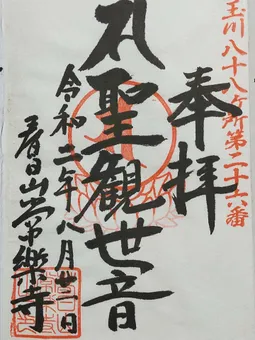 玉川八十八ヶ所第二十六番
奉拝
聖観世音
令和二年八月廿二日
春日山常楽寺